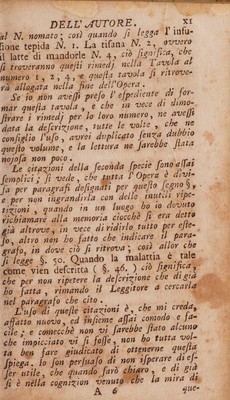 DELL'AUTORE. XI
al N. nomato; così quando si legga l'infu-
sione tepida N. 1. La tisana N. 2, ovvero
il latte di mandorle N. 4, ciò significa, che
si troveranno questi rimedj nella Tavola al
numero 1, 2, 4, e questa tavola si ritrove-
rà allogata nella fine dell'Opera.
Se io non avessi preso l'espediente di for-
mar questa tavola, e che in vece di dimo-
strare i rimedj per lo loro numero, ne avessi
data la descrizione, tutte le volte, che ne
consiglio l'uso, avrei duplicato senza dubbio
questo volume, e la lettura ne sarebbe stata
nojosa non poco.
Le citazioni della seconda specie sono assai
semplici; si vede, che tutta l'Opera è divi-
sa per paragrafi designati per questo segno §,
e per non ingrandirla con delle inutili ripe-
tizioni, quando in un luogo ho io dovuto
richiamare alla memoria ciocchè si era detto
già altrove, in vece di ridirlo tutto per este-
so, altro non ho fatto che indicare il para-
grafo, in dove ciò si ritrova; così allor che
si legge §. 50. Quando la malattia è tale
come vien descritta (§. 46.) ciò significa,
che per non ripetere la descrizione che di già
ho fatta, rimando il Leggitore a cercarla
nel paragrafo che cito.
L'uso di queste citazioni è, che mi creda,
affatto nuovo, ed insieme assai comodo e fa-
cile; e comecchè non vi sarebbe stato alcuno
che impicciato vi si fosse, non ho tutta vol-
ta ben fare giudicato di ottenerne questa
spiega. Io son persuaso di non isperare di es-
ser utile, che quando sarò chiaro, e di già
si è nella cognizion venuto che la mira di
A 6 que-